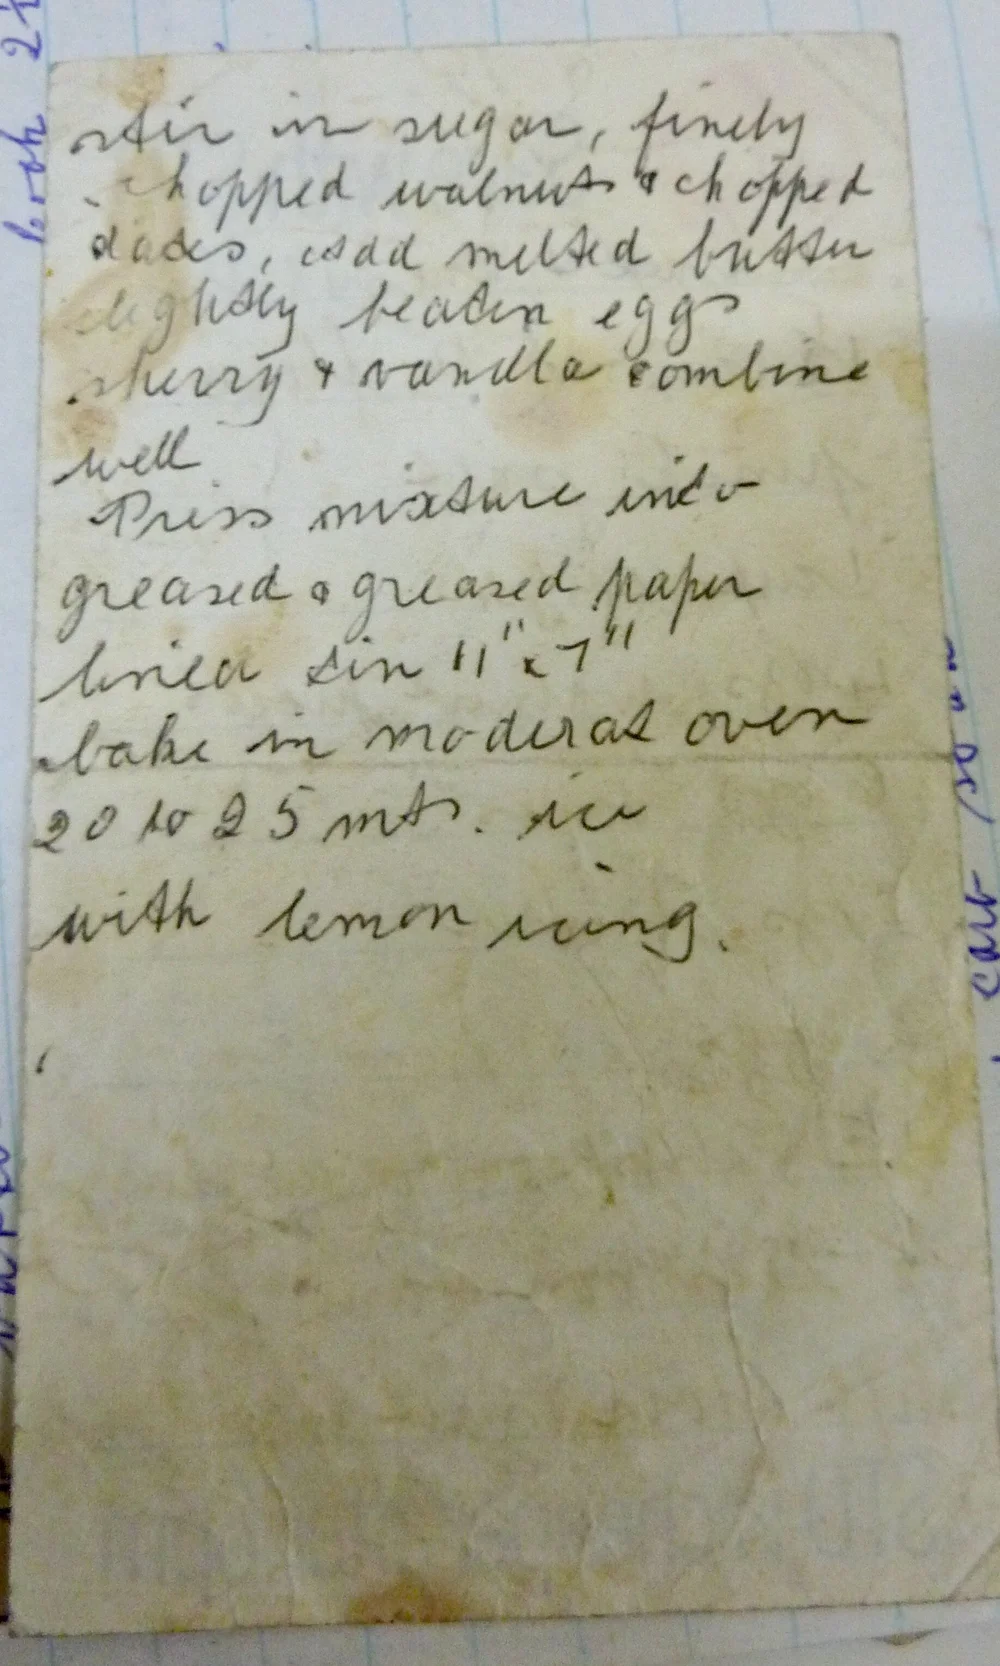 stir in sugar, finely
chopped walnuts & chopped
dates, Add melted butter
lightly beaten eggs
sherry & vanilla combine
well
Press mixture into
greased & greased paper
lined tin 11" x 7"
bake in moderat oven
20 to 25 mts. ice
with lemon icing.